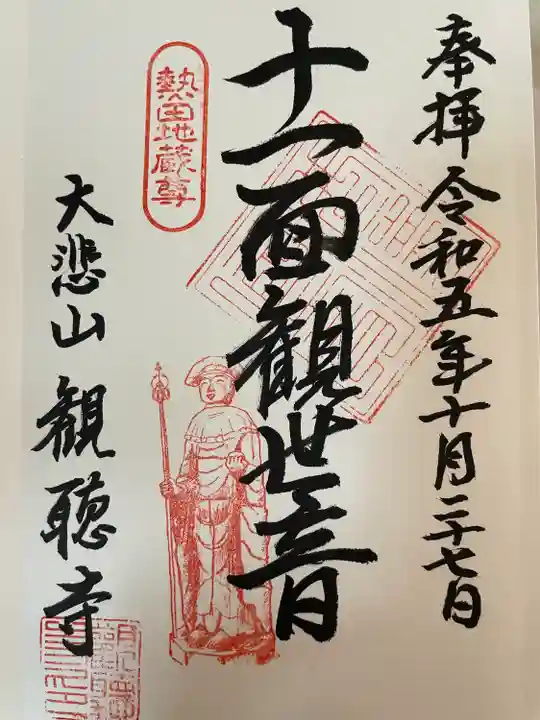 奉拝 令和五年十月二十七日
十一面観世音
熱田地蔵尊
大悲山 観聴寺